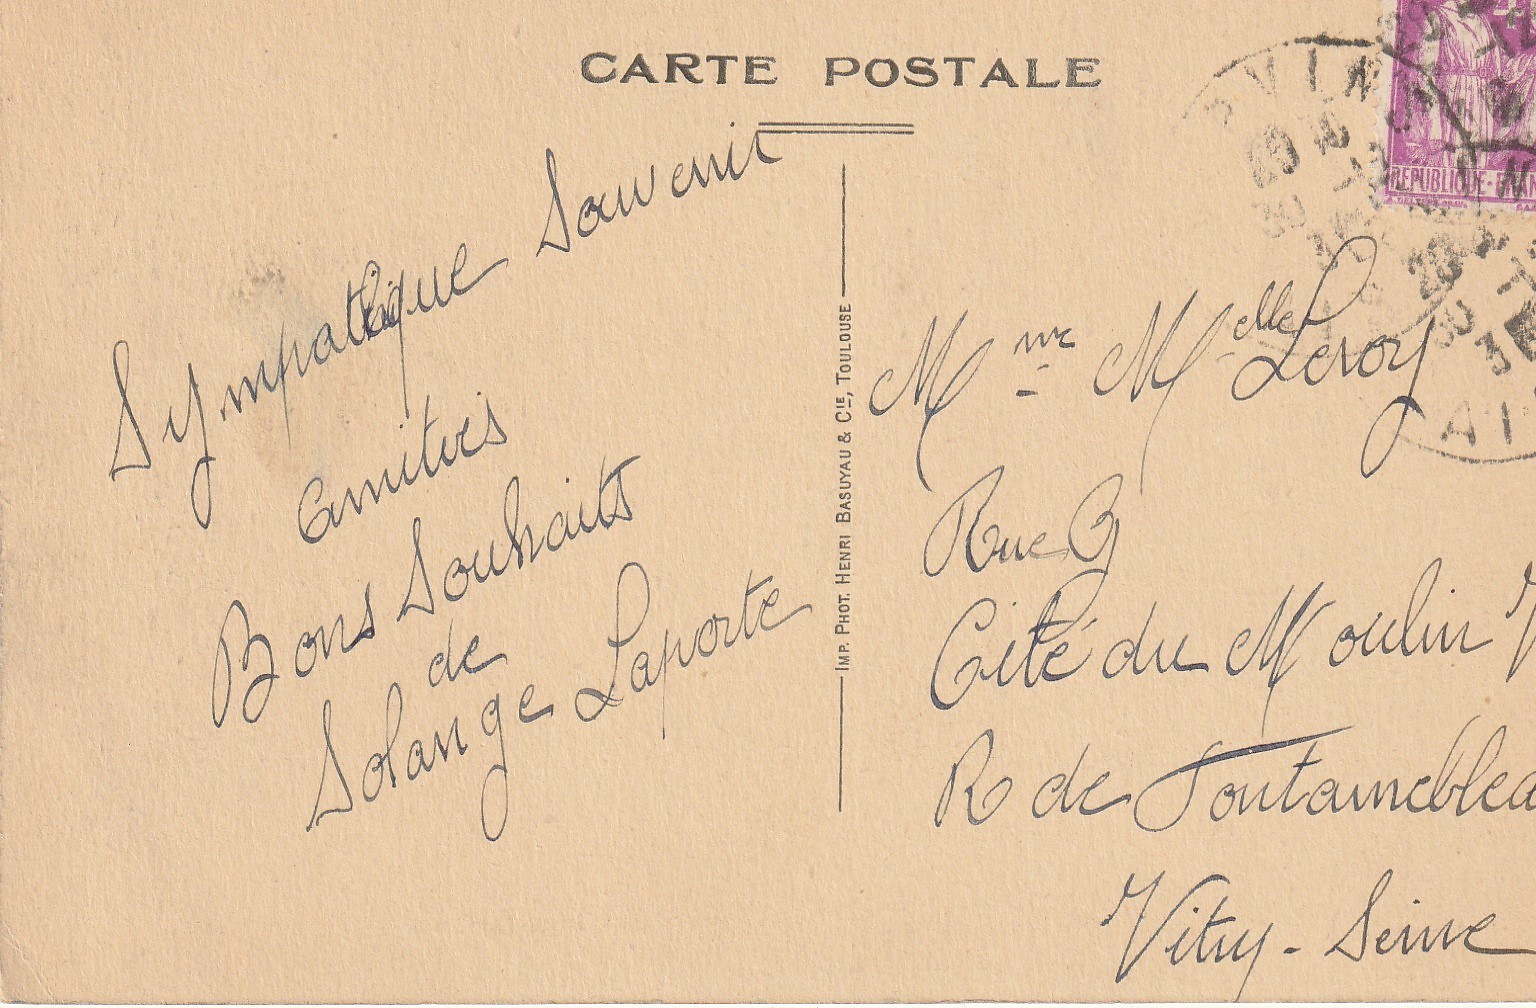 CARTE POSTALE
Sympathique Souvenir
amitiés
Bons Souhaits
de
Solange Laporte
IMP. PHOT. HENRI BASUYAU & CIE, TOULOUSE
REPUBLIQUE-
Mme Melle Leroy
Rue G
Cité du Moulin V
R de Fontaineblea
Vitry - Seine